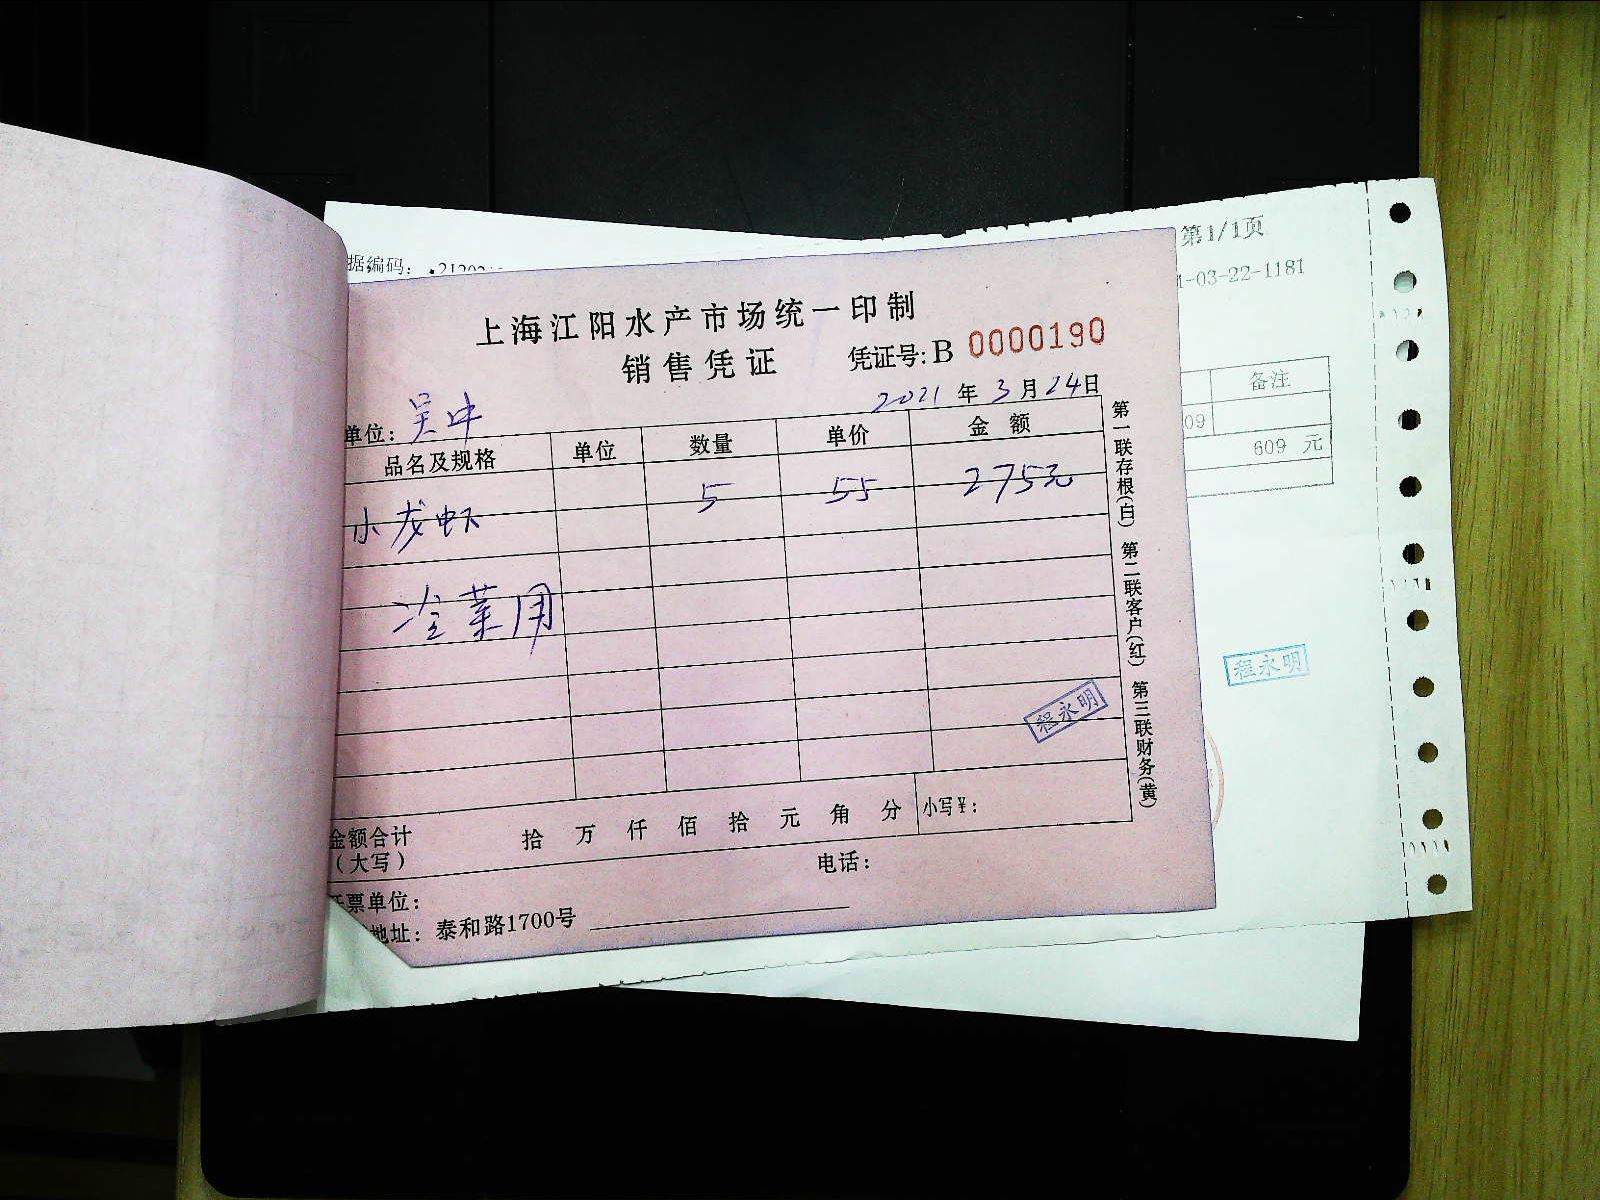 第1/1页
据编码：
1-03-22-1181
上海江阳水产市场统一印制
销售凭证
凭证号: B 0000190
2021 年 3 月 24 日
单位：吴中
品名及规格 单位 数量 单价 金额
小龙虾 5 55 275元
冷菜用
程永明
金额合计（大写） 拾 万 仟 佰 拾 元 角 分 小写￥：
电话：
票单位：
地址：泰和路1700号
第一联存根(白) 第二联客户(红) 第三联财务(黄)
备注
09
609 元
程永明